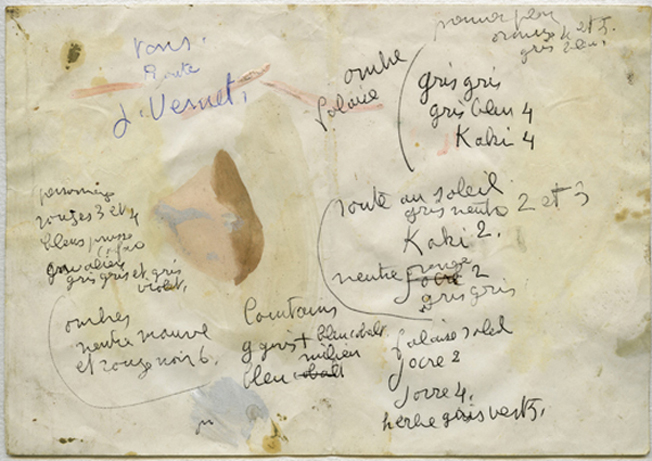 tons.
Route
J. Vernet.
premier plan
orange 4 et 5.
gris bleu.
ombre
falaise
gris gris
gris bleu 4
Kaki 4
personnages
rouges 3 et 4
bleus prusse
cavalier
gris gris et gris
violet.
route au soleil
gris neutre 2 et 3
Kaki 2.
neutre rouge
Jocre 2
gris gris
ombres
neutre mauve
et rouge noir 6.
lointains
g gris + bleu cobalt
milieu
bleu cobalt
falaise soleil
Jocre 2
Jocre 4.
herbe gris vert 5.